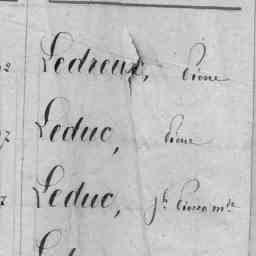 2 Ledreux, Pierre
7 Leduc, Pierre
7 Leduc, Jh Pierre